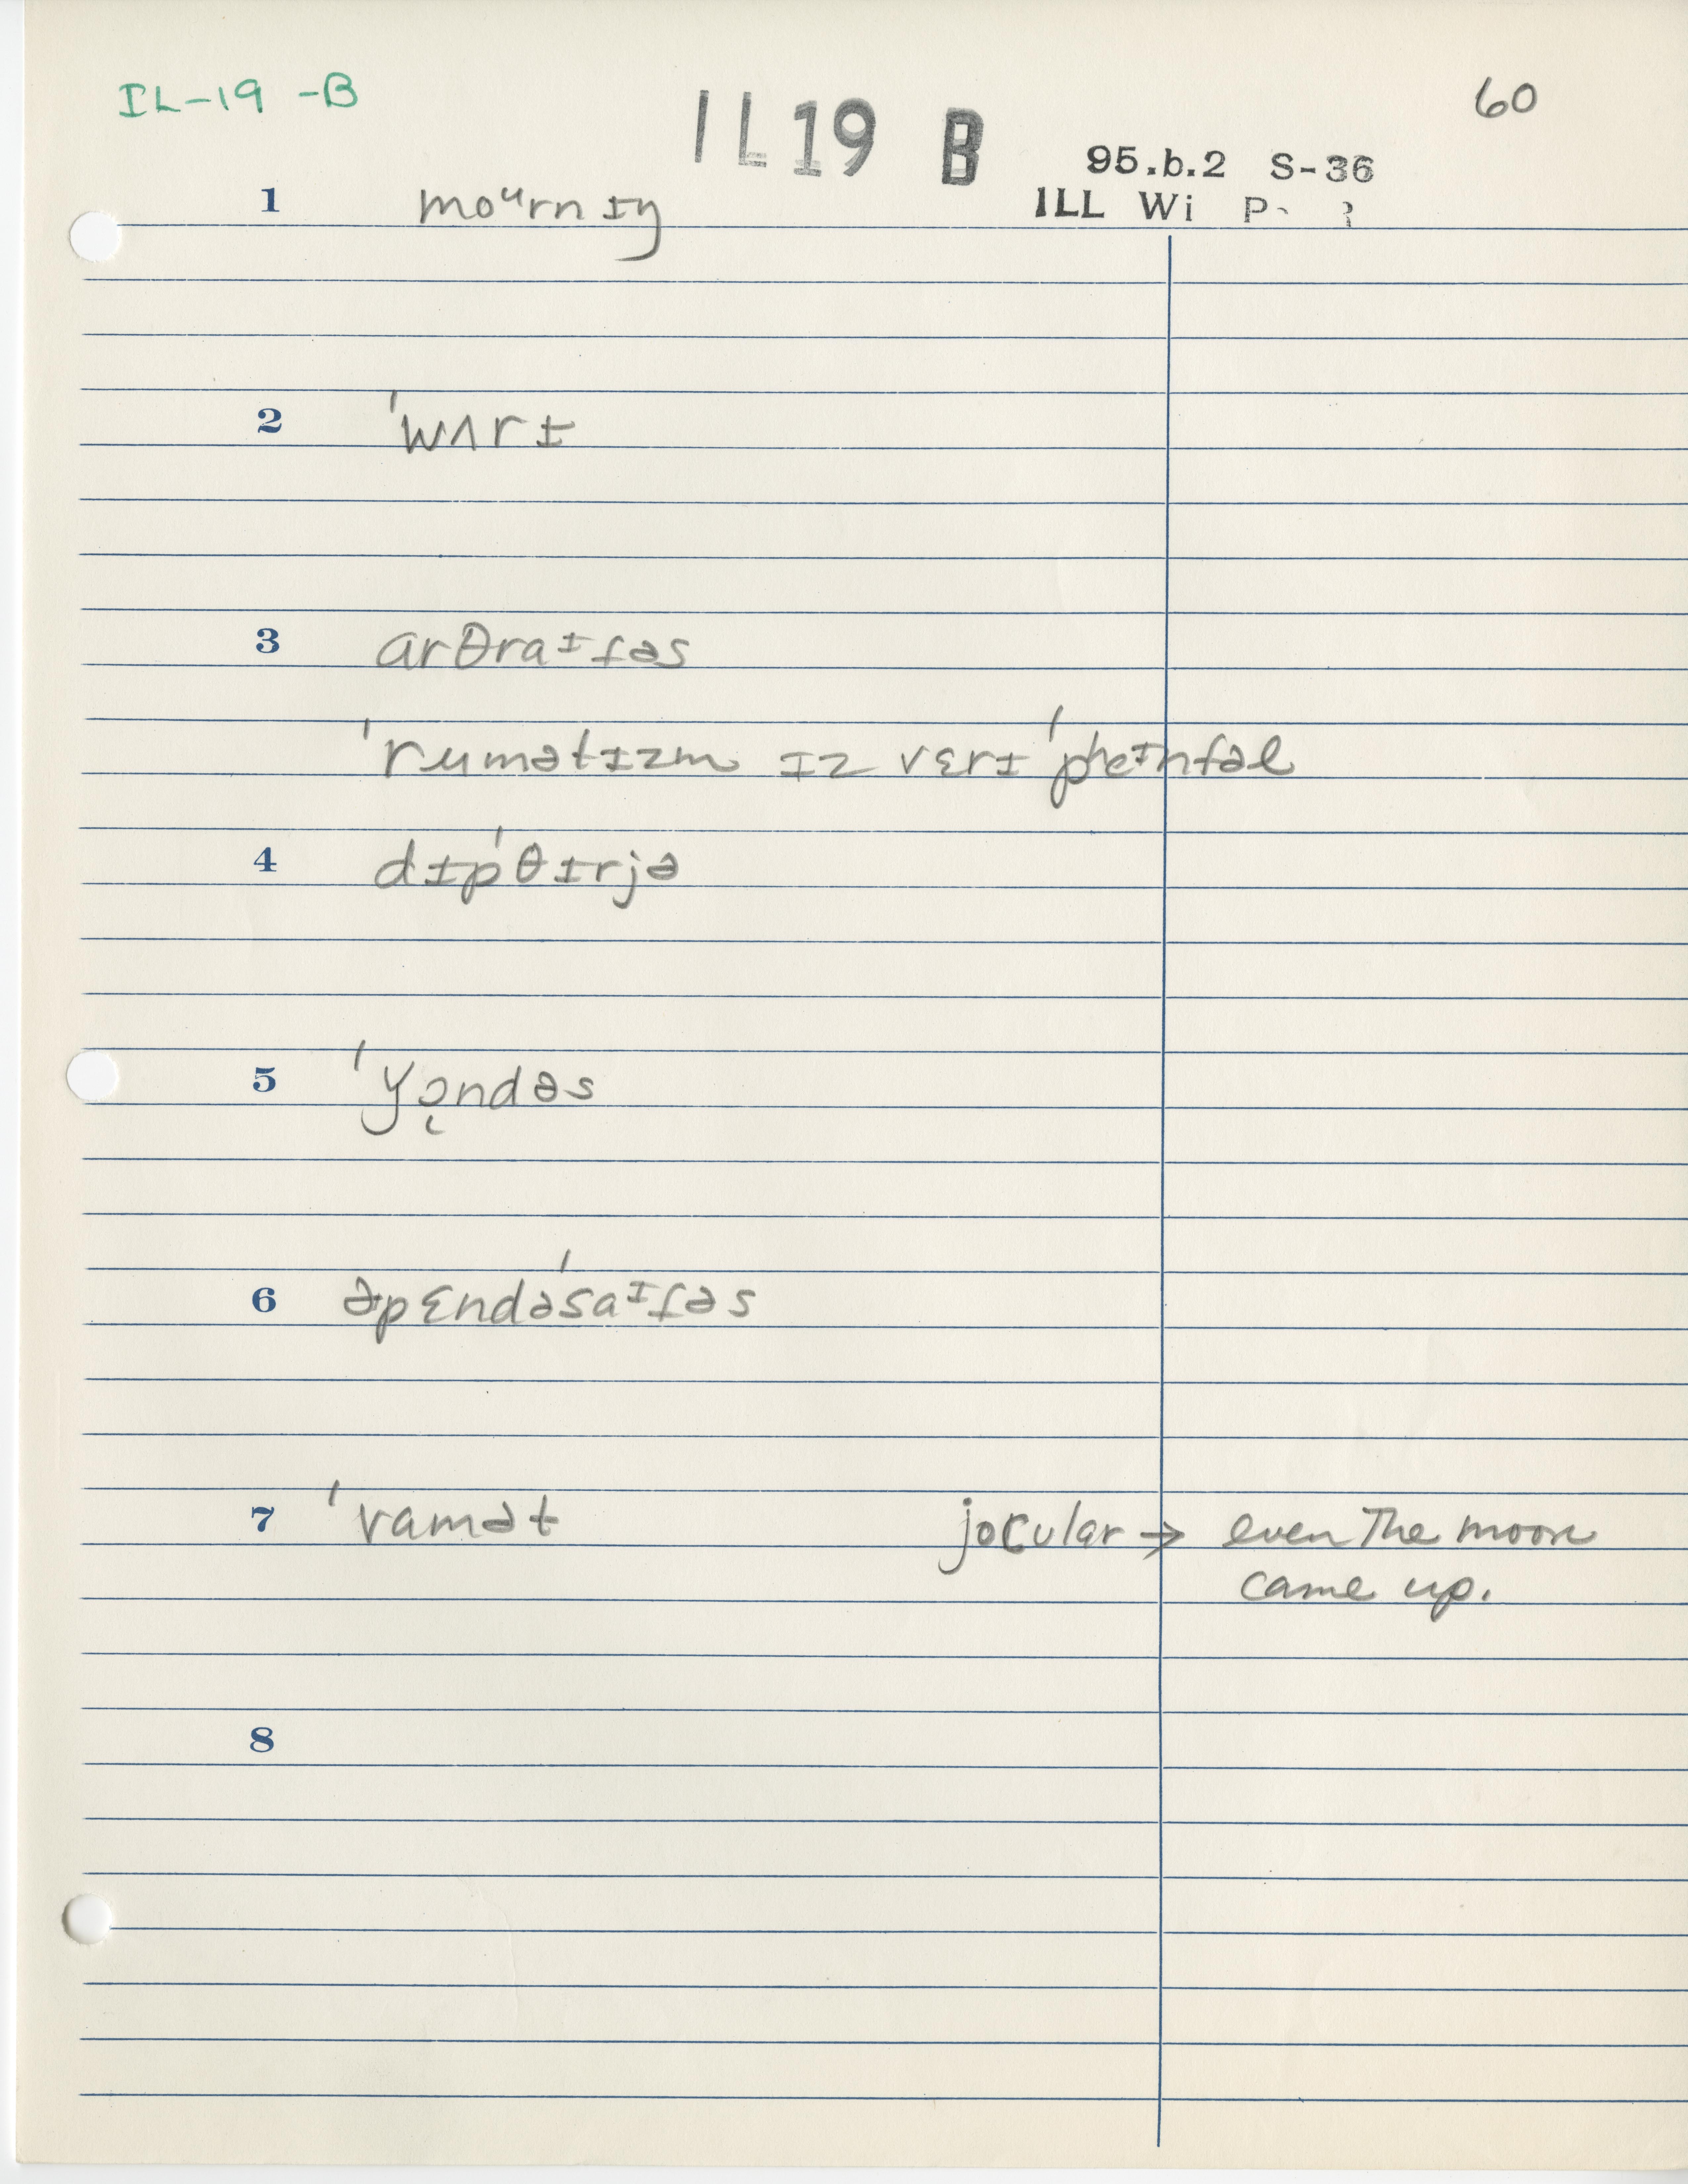 IL-19 -B
60
IL19 B
95.b.2 S-36
ILL Wi
1 moᵘrnɪŋ
2 ˈwʌrɪ
3 arθraᶦɾəs
ˈrumətɪzm ɪz vɛrɪ ˈpʰeᶦnfəl
4 dɪpˈθɪrjə
5 ˈyɔ̨ndəs
6 əpɛndəˈsaᶦɾəs
7 ˈvamət jocular → even The moon
came up.
8